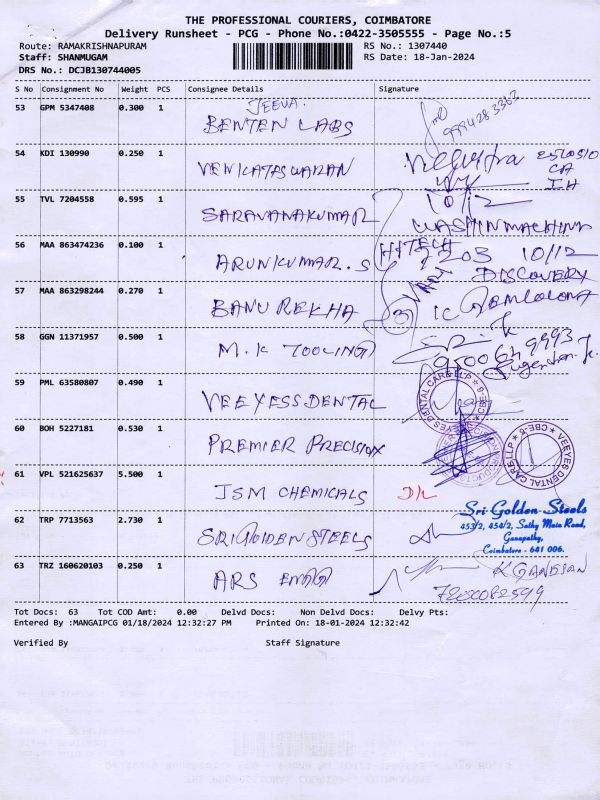 THE PROFESSIONAL COURIERS, COIMBATORE
Delivery Runsheet - PCG - Phone No.:0422-3505555 - Page No.:5
Route: RAMAKRISHNAPURAM RS No.: 1307440
Staff: SHANMUGAM RS Date: 18-Jan-2024
DRS No.: DCJB130744005
S No Consignment No Weight PCS Consignee Details Signature
53 GPM 5347408 0.300 1 JEEVA. BENTEN LABS 9984283362
54 KDI 130990 0.250 1 VENKATESWARAN
55 TVL 7204558 0.595 1 SARAVANAKUMAR 10/12 WASHINMACHINE
56 MAA 863474236 0.100 1 ARUNKUMAR.S HITECH 7203 10/12 DISCOVERY
57 MAA 863298244 0.270 1 BANU REKHA
58 GGN 11371957 0.500 1 M.K TOOLING
59 PML 63580807 0.490 1 VEEYESS DENTAL
VEEYES DENTAL CARE LLP CBE-6
60 BOH 5227181 0.530 1 PREMIER PRECISION
VEEYES DENTAL CARE LLP CBE-6
61 VPL 521625637 5.500 1 JSM CHEMICALS D/L
62 TRP 7713563 2.730 1 SRI GOLDEN STEELS
Sri Golden Steels
453/2, 454/2, Sathy Main Road,
Ganapathy,
Coimbatore - 641 006.
63 TRZ 160620103 0.250 1 ARS K GANESAN
Tot Docs: 63 Tot COD Amt: 0.00 Delvd Docs: Non Delvd Docs: Delvy Pts:
Entered By :MANGAIPCG 01/18/2024 12:32:27 PM Printed On: 18-01-2024 12:32:42
Verified By Staff Signature